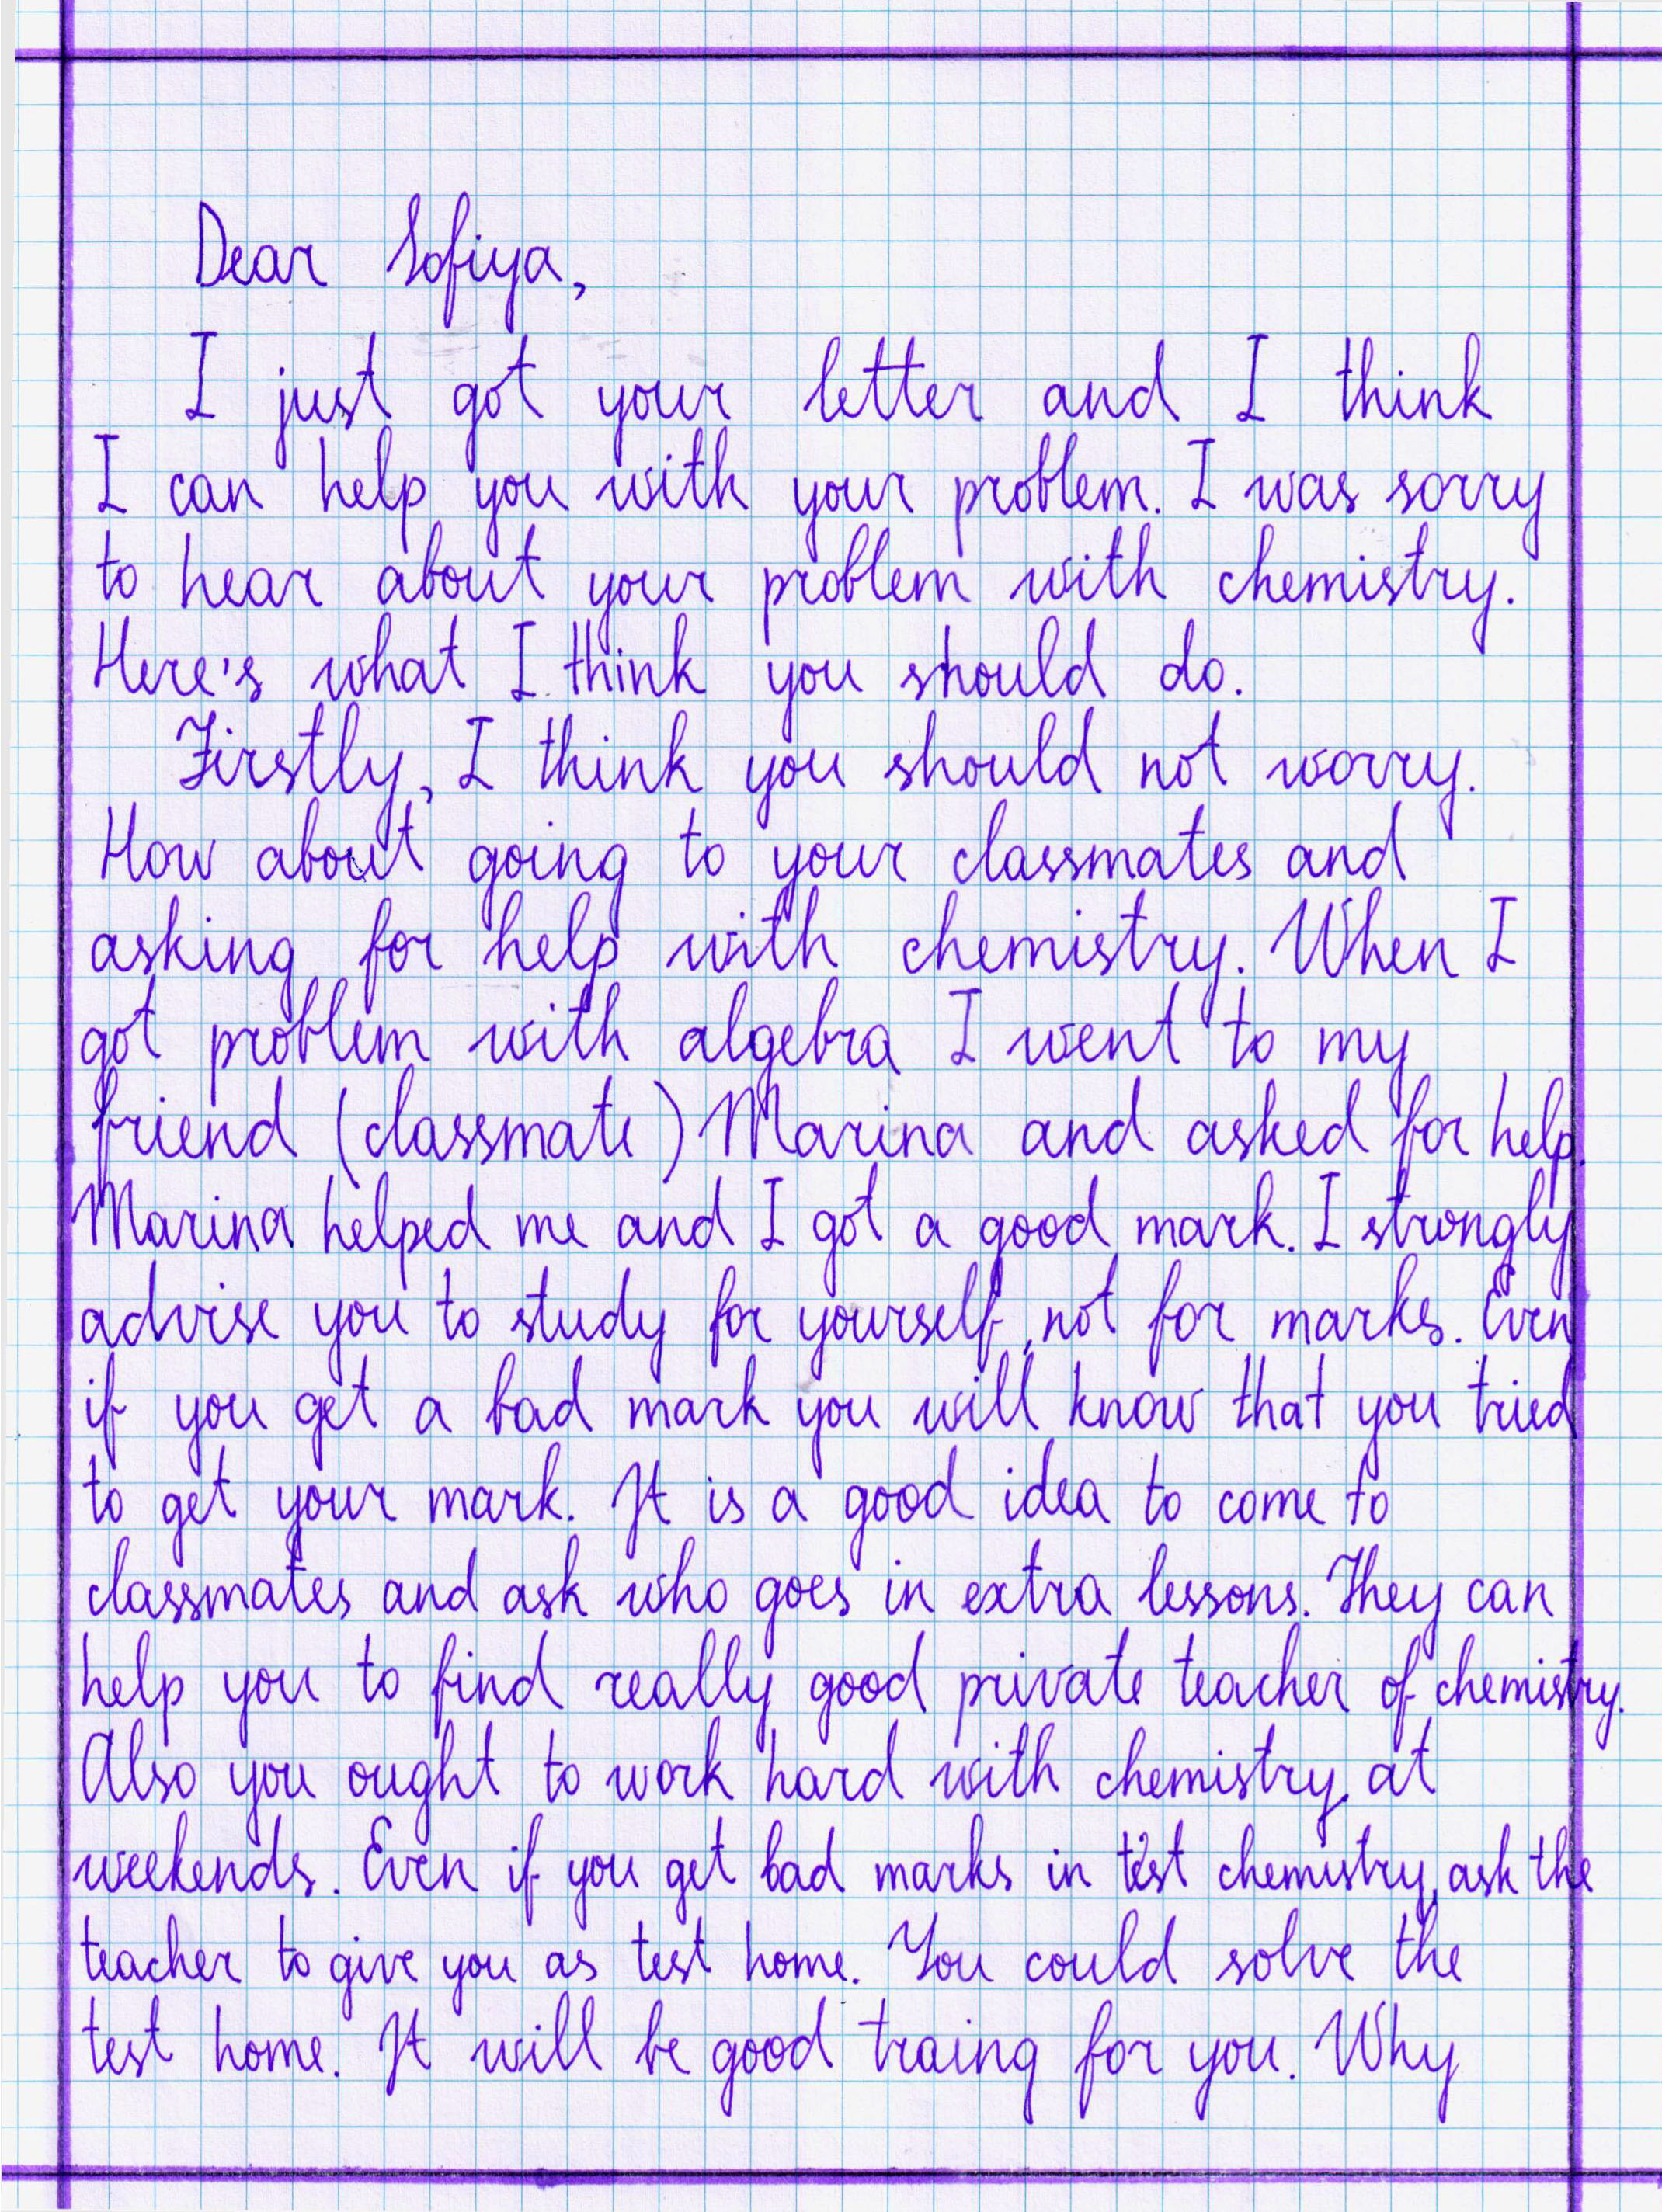 Dear Sofiya,
I just got your letter and I think
I can help you with your problem. I was sorry
to hear about your problem with chemistry.
Here's what I think you should do.
Firstly, I think you should not worry.
How about going to your classmates and
asking for help with chemistry. When I
got problem with algebra I went to my
friend (classmate) Marina and asked for help.
Marina helped me and I got a good mark. I strongly
advise you to study for yourself, not for marks. Even
if you get a bad mark you will know that you tried
to get your mark. It is a good idea to come to
classmates and ask who goes in extra lessons. They can
help you to find really good private teacher of chemistry.
Also you ought to work hard with chemistry, at
weekends. Even if you get bad marks in test chemistry, ask the
teacher to give you as test home. You could solve the
test home. It will be good traing for you. Why